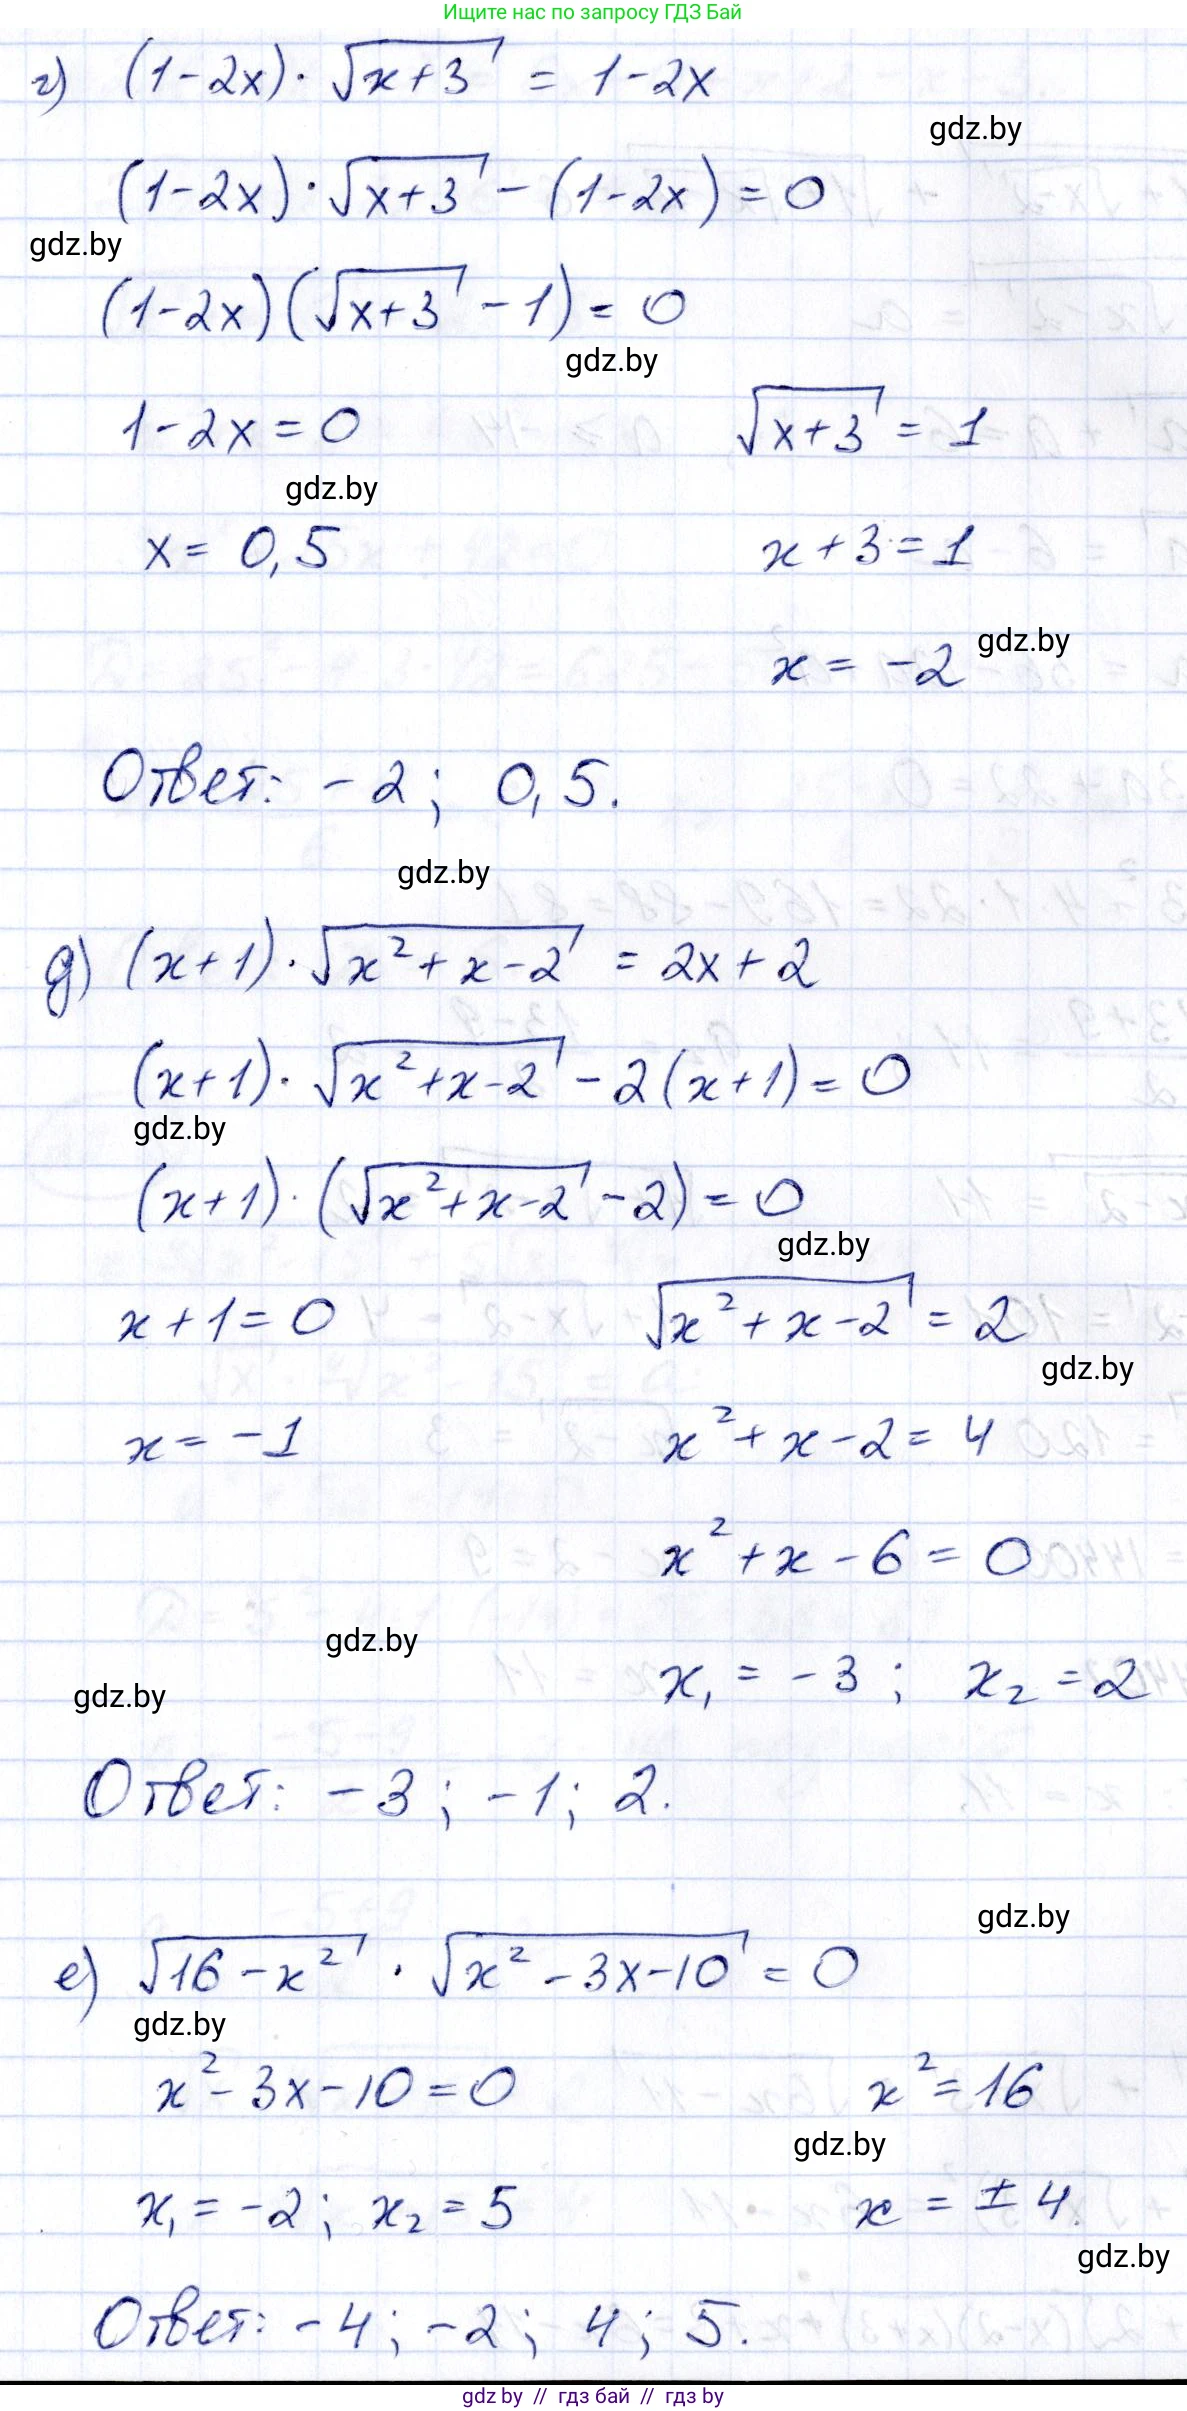 Ищите нас по запросу ГДЗ Бай
г) (1-2x)·√(x+3) = 1-2x
gdz.by
(1-2x)·√(x+3) - (1-2x) = 0
gdz.by
(1-2x)(√(x+3) - 1) = 0
gdz.by
1-2x = 0 √(x+3) = 1
gdz.by
x = 0,5 x+3 = 1
gdz.by
x = -2
Ответ: -2; 0,5.
gdz.by
д) (x+1)·√(x²+x-2) = 2x+2
(x+1)·√(x²+x-2) - 2(x+1) = 0
gdz.by
(x+1)·(√(x²+x-2) - 2) = 0
gdz.by
x+1 = 0 √(x²+x-2) = 2
gdz.by
x = -1 x²+x-2 = 4
x²+x-6 = 0
gdz.by
gdz.by
x₁ = -3; x₂ = 2
Ответ: -3; -1; 2.
gdz.by
е) √(16-x²) · √(x²-3x-10) = 0
gdz.by
x²-3x-10 = 0 x² = 16
gdz.by
x₁ = -2; x₂ = 5 x = ±4.
gdz.by
Ответ: -4; -2; 4; 5.
gdz by // гдз бай // гдз by